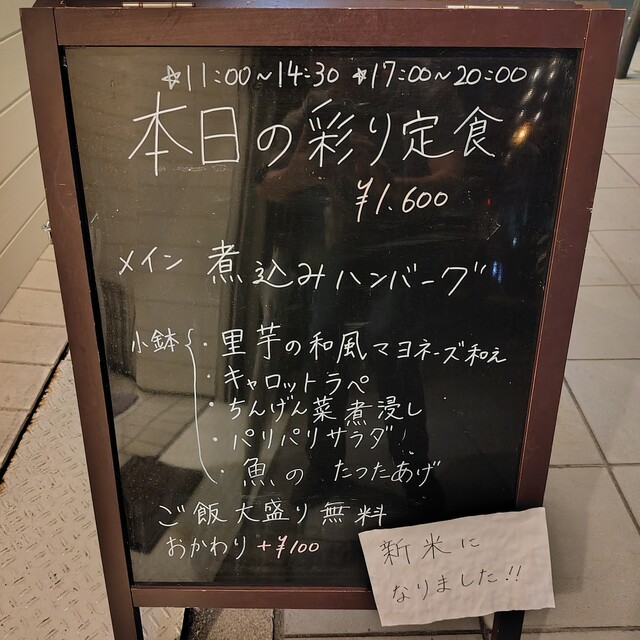 ☆11:00~14:30 ☆17:00~20:00
本日の彩り定食
¥1.600
メイン 煮込みハンバーグ
小鉢
・里芋の和風マヨネーズ和え
・キャロットラペ
・ちんげん菜煮浸し
・パリパリサラダ
・魚の たつたあげ
ご飯大盛り無料
おかわり+¥100
新米に
なりました!!